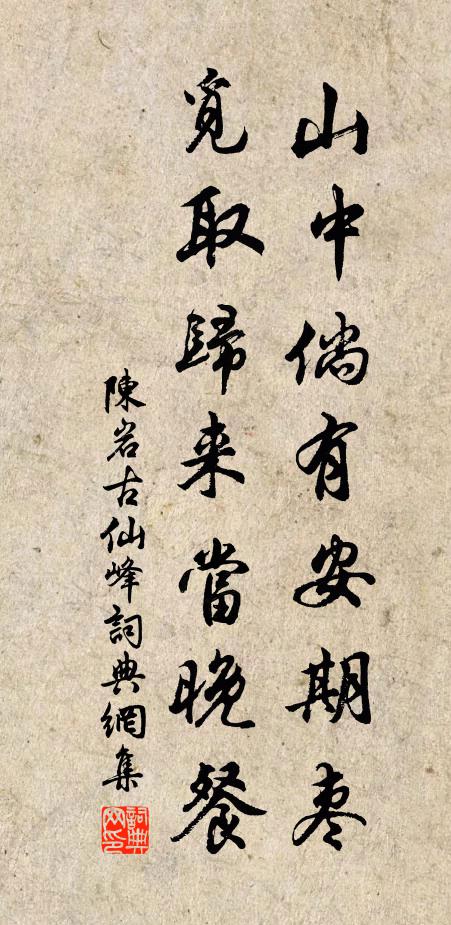 山中倘有安期枣
觅取歸来當晚餐
陳岩古仙峰詞典網集
詞典网印